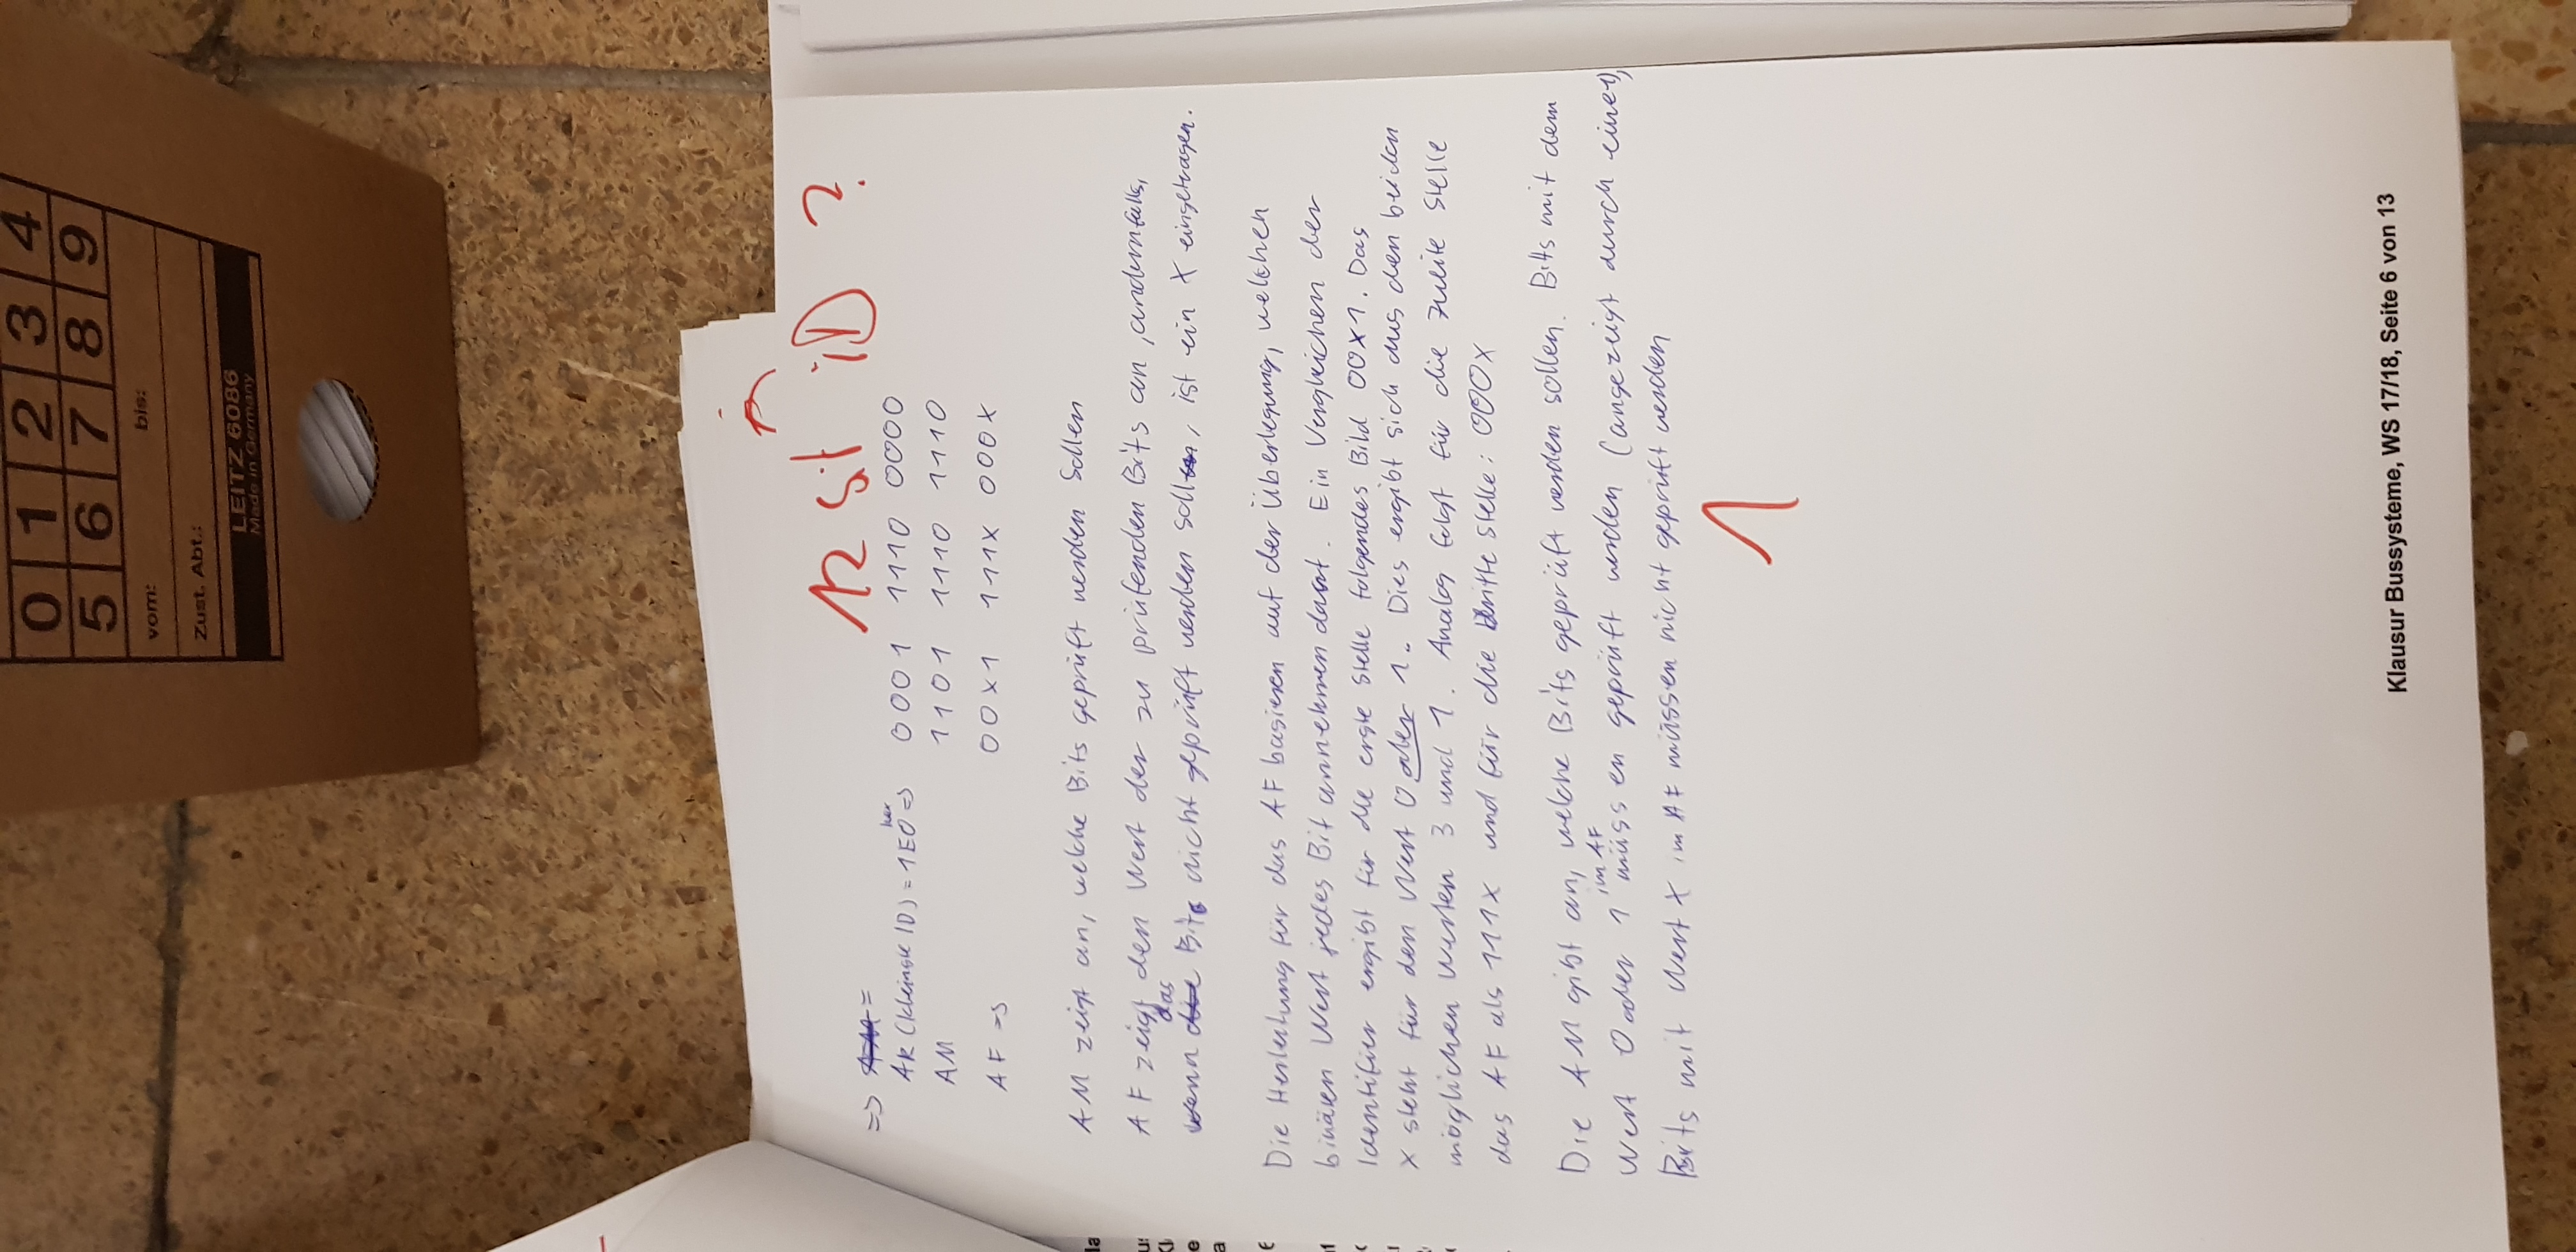 0 1 2 3 4
5 6 7 8 9
vom: bis:
Zust. Abt.:
LEITZ 6086
Made in Germany
12 Bit iD ?
=> AM =
AR (kleinste ID) = 1E0 hex => 0001 1110 0000
AM 1101 1110 1110
AF => 00X1 111X 000X
AM zeigt an, welche Bits geprüft werden sollen
AF zeigt den Wert der zu prüfenden Bits an, andernfalls,
wenn das Bit nicht geprüft werden soll, ist ein X eingetragen.
Die Herleitung für das AF basieren auf der Überlegung, welchen
binären Wert jedes Bit annehmen darf. Ein Vergleichen der
Identifier ergibt für die erste Stelle folgendes Bild 00X1. Das
X steht für den Wert 0 oder 1. Dies ergibt sich aus den beiden
möglichen Werten 3 und 1. Analog folgt für die zweite Stelle
das AF als 111X und für die dritte Stelle: 000X
Die AM gibt an, welche Bits geprüft werden sollen. Bits mit dem
Wert 0 oder 1 im AF müssen geprüft werden (angezeigt durch eine 1),
Bits mit Wert X im AF müssen nicht geprüft werden
1
Klausur Bussysteme, WS 17/18, Seite 6 von 13